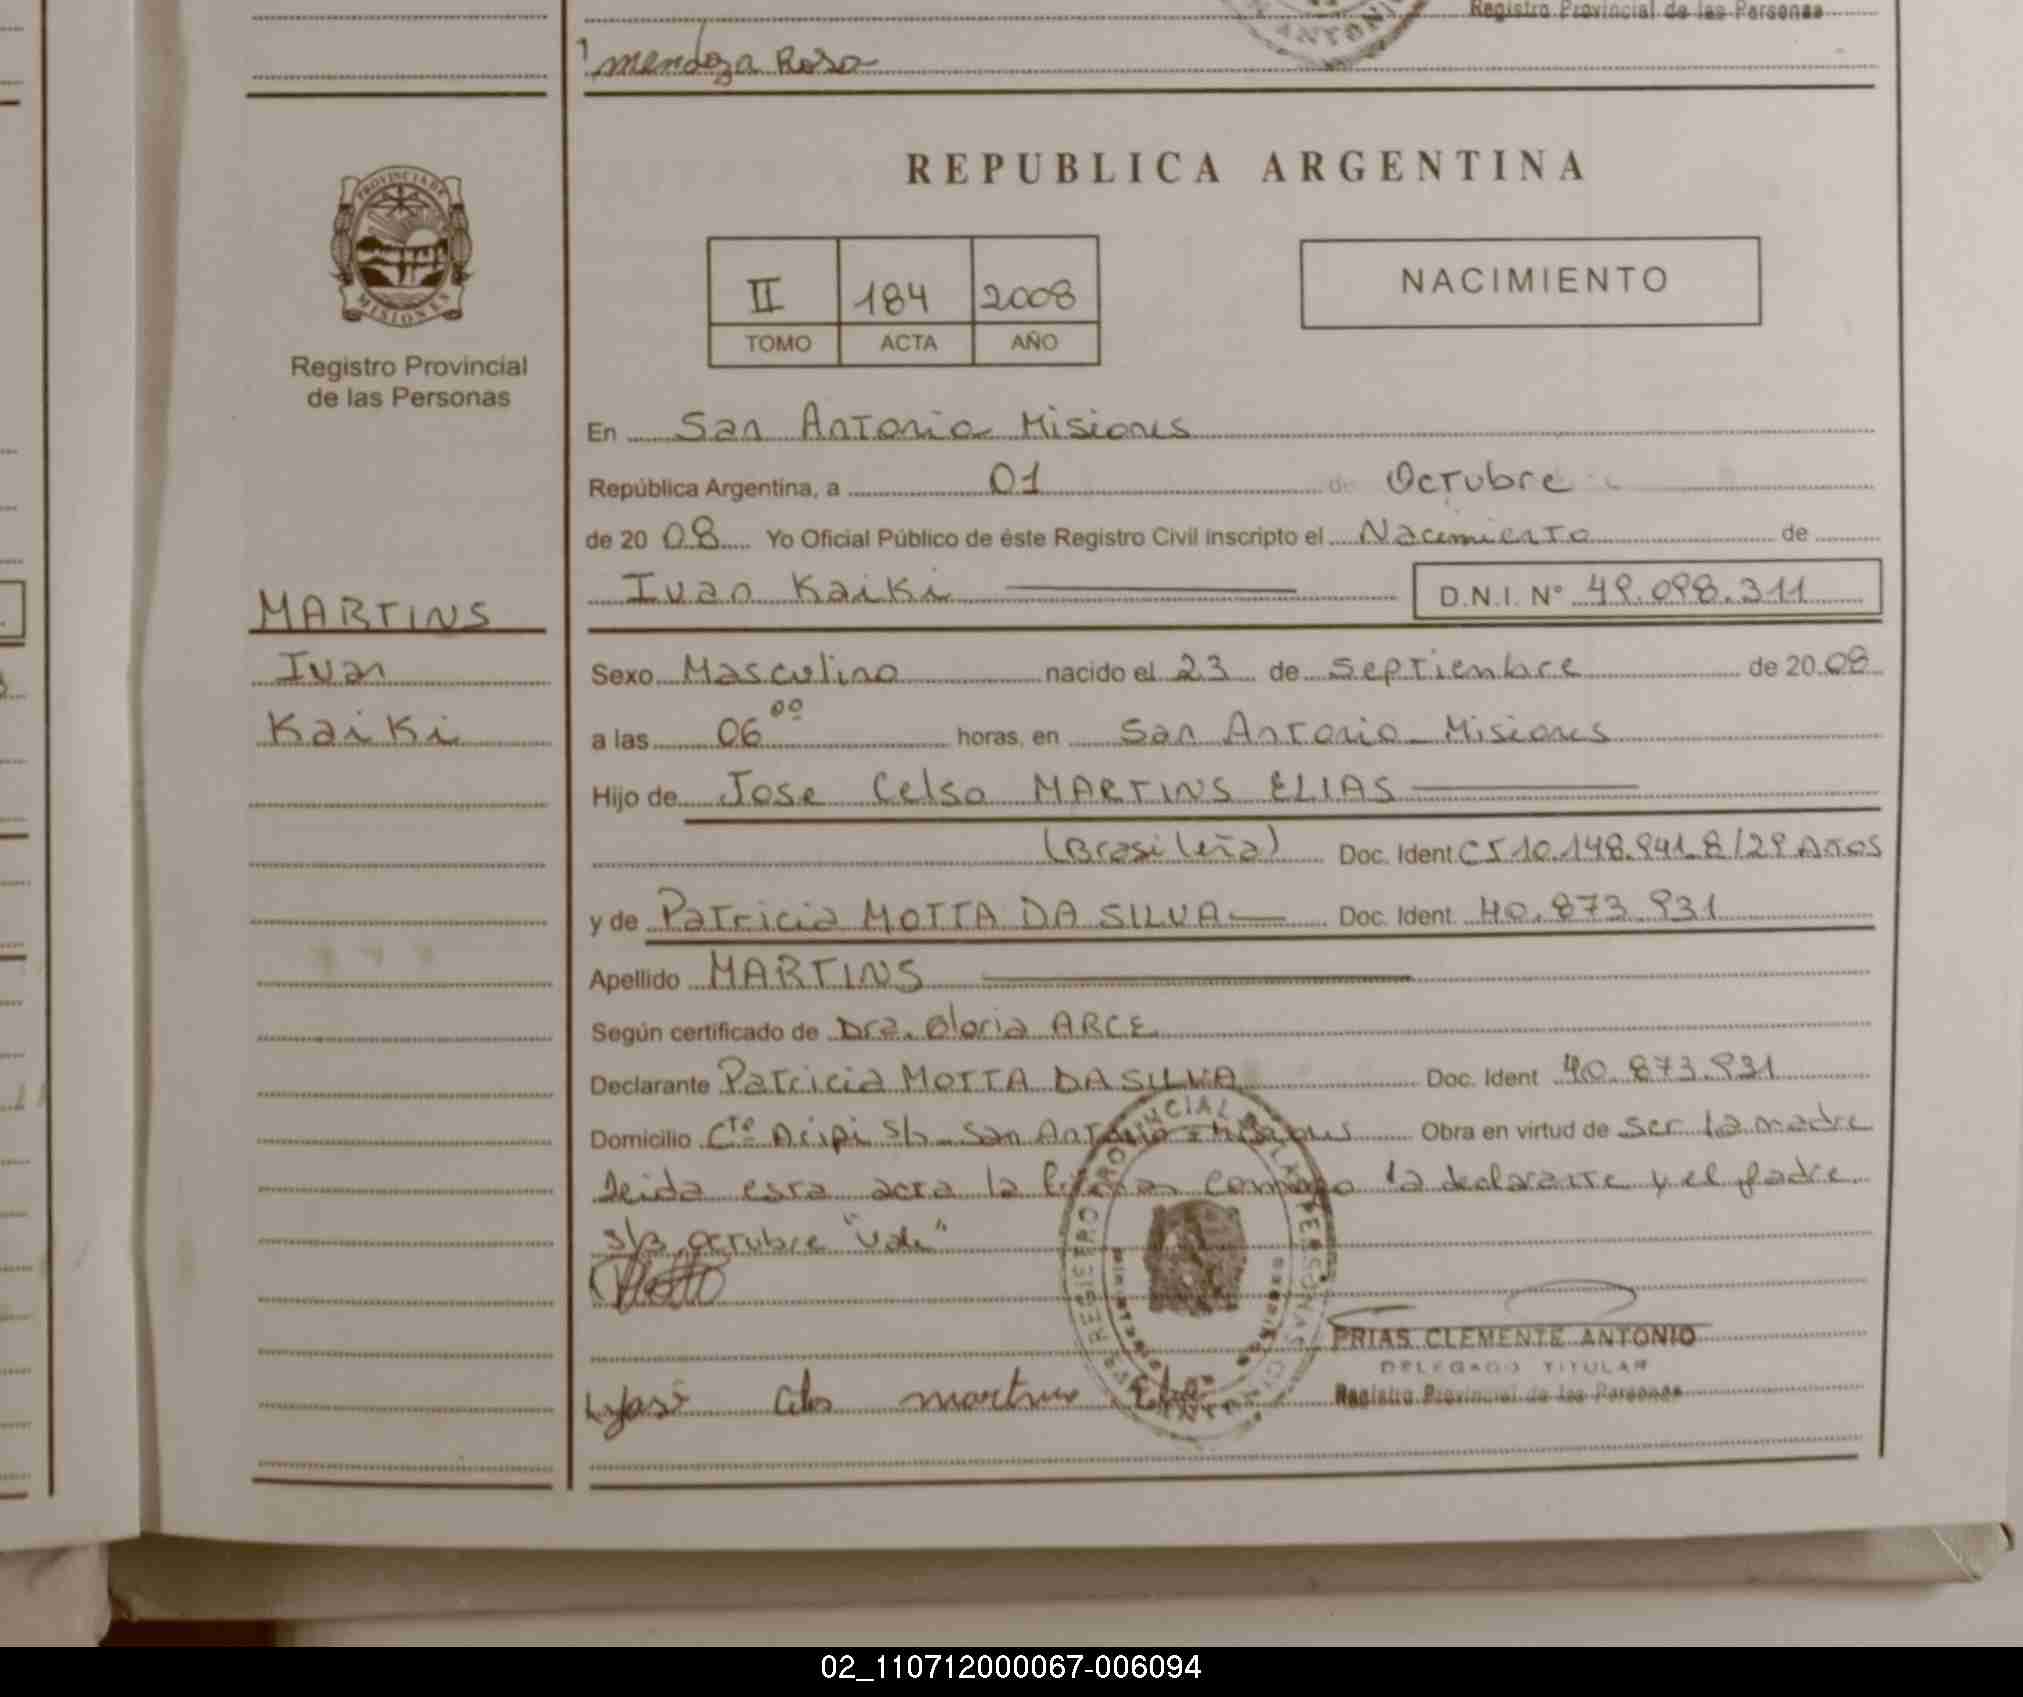 Registro Provincial de las Personas
Mendoza Rosa
REPUBLICA ARGENTINA
PROVINCIA DE
MISIONES
Registro Provincial
de las Personas
II 184 2008
TOMO ACTA AÑO
NACIMIENTO
En San Antonio Misiones
República Argentina, a 01 de Octubre
de 20 08 Yo Oficial Público de éste Registro Civil inscripto el Nacimiento de
Ivan Kaiki D.N.I. Nº 49.098.311
MARTINS
Ivan
Kaiki
Sexo Masculino nacido el 23 de Septiembre de 20 08
a las 06 00 horas, en San Antonio Misiones
Hijo de Jose Celso MARTINS ELIAS
(Brasileña) Doc. Ident CI 10.148.941.8/29 Años
y de Patricia MOTTA DA SILVA Doc. Ident. 40.873.931
Apellido MARTINS
Según certificado de Dra. Gloria ARCE
Declarante Patricia MOTTA DA SILVA Doc. Ident 40.873.931
Domicilio San Antonio Misiones Obra en virtud de ser la madre
Leida esta acta la firman conmigo la declarante y el padre
s/b octubre "vale"
PRIAS CLEMENTE ANTONIO
DELEGADO TITULAR
Registro Provincial de las Personas
José Celso Martins Elias
02_110712000067-006094